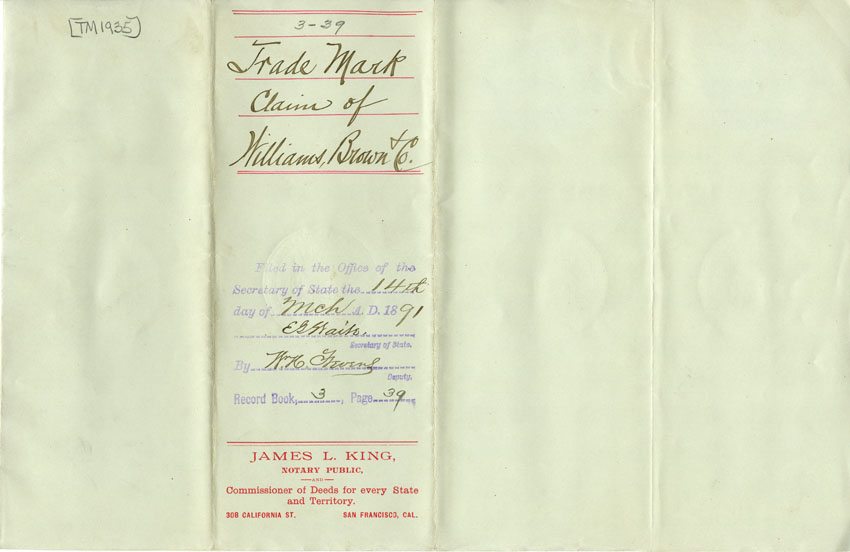 [TM1935]
3-39
Trade Mark
Claim of
Williams, Brown & Co.
Filed in the Office of the
Secretary of State the 14th
day of Mch A. D. 1891
E G Waite.
Secretary of State.
By W. H.
Deputy.
Record Book, 3, Page 39
JAMES L. KING,
NOTARY PUBLIC,
—AND—
Commissioner of Deeds for every State
and Territory.
308 CALIFORNIA ST. SAN FRANCISCO, CAL.